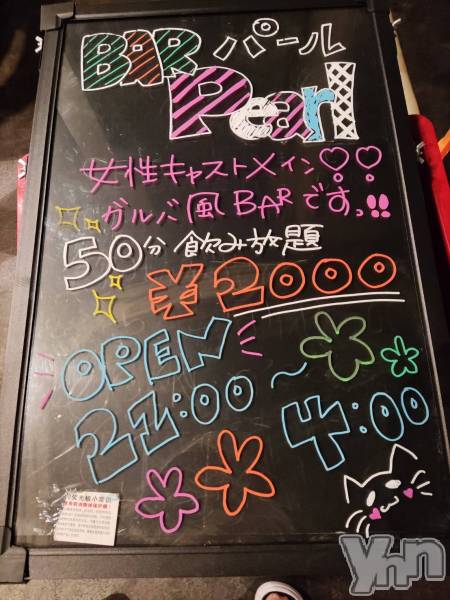 BAR パール
Pearl
女性キャストメイン!?
ガルバ風BARですっ!!
50分 飲み放題
¥2000
OPEN
21:00〜4:00
ynn